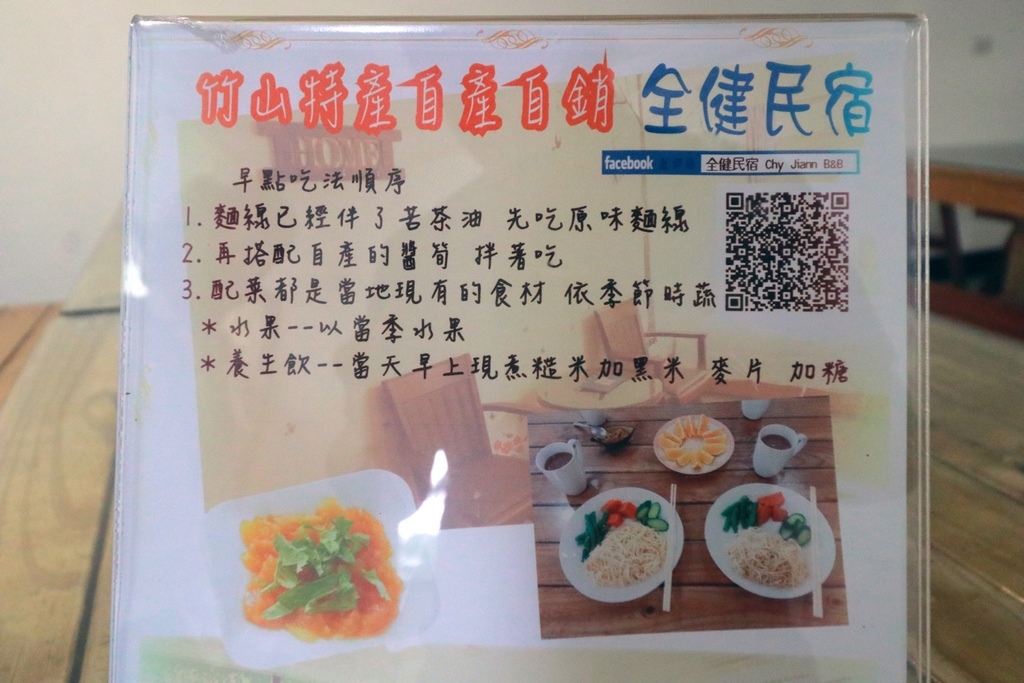 竹山特產自產自銷 全健民宿
facebook 全健民宿 Chy Jiann B&B
HOME
早點吃法順序
1. 麵線已經伴了苦茶油 先吃原味麵線
2. 再搭配自產的醬筍 拌著吃
3. 配菜都是當地現有的食材 依季節時蔬
*水果--以當季水果
*養生飲--當天早上現煮糙米加黑米 麥片 加糖